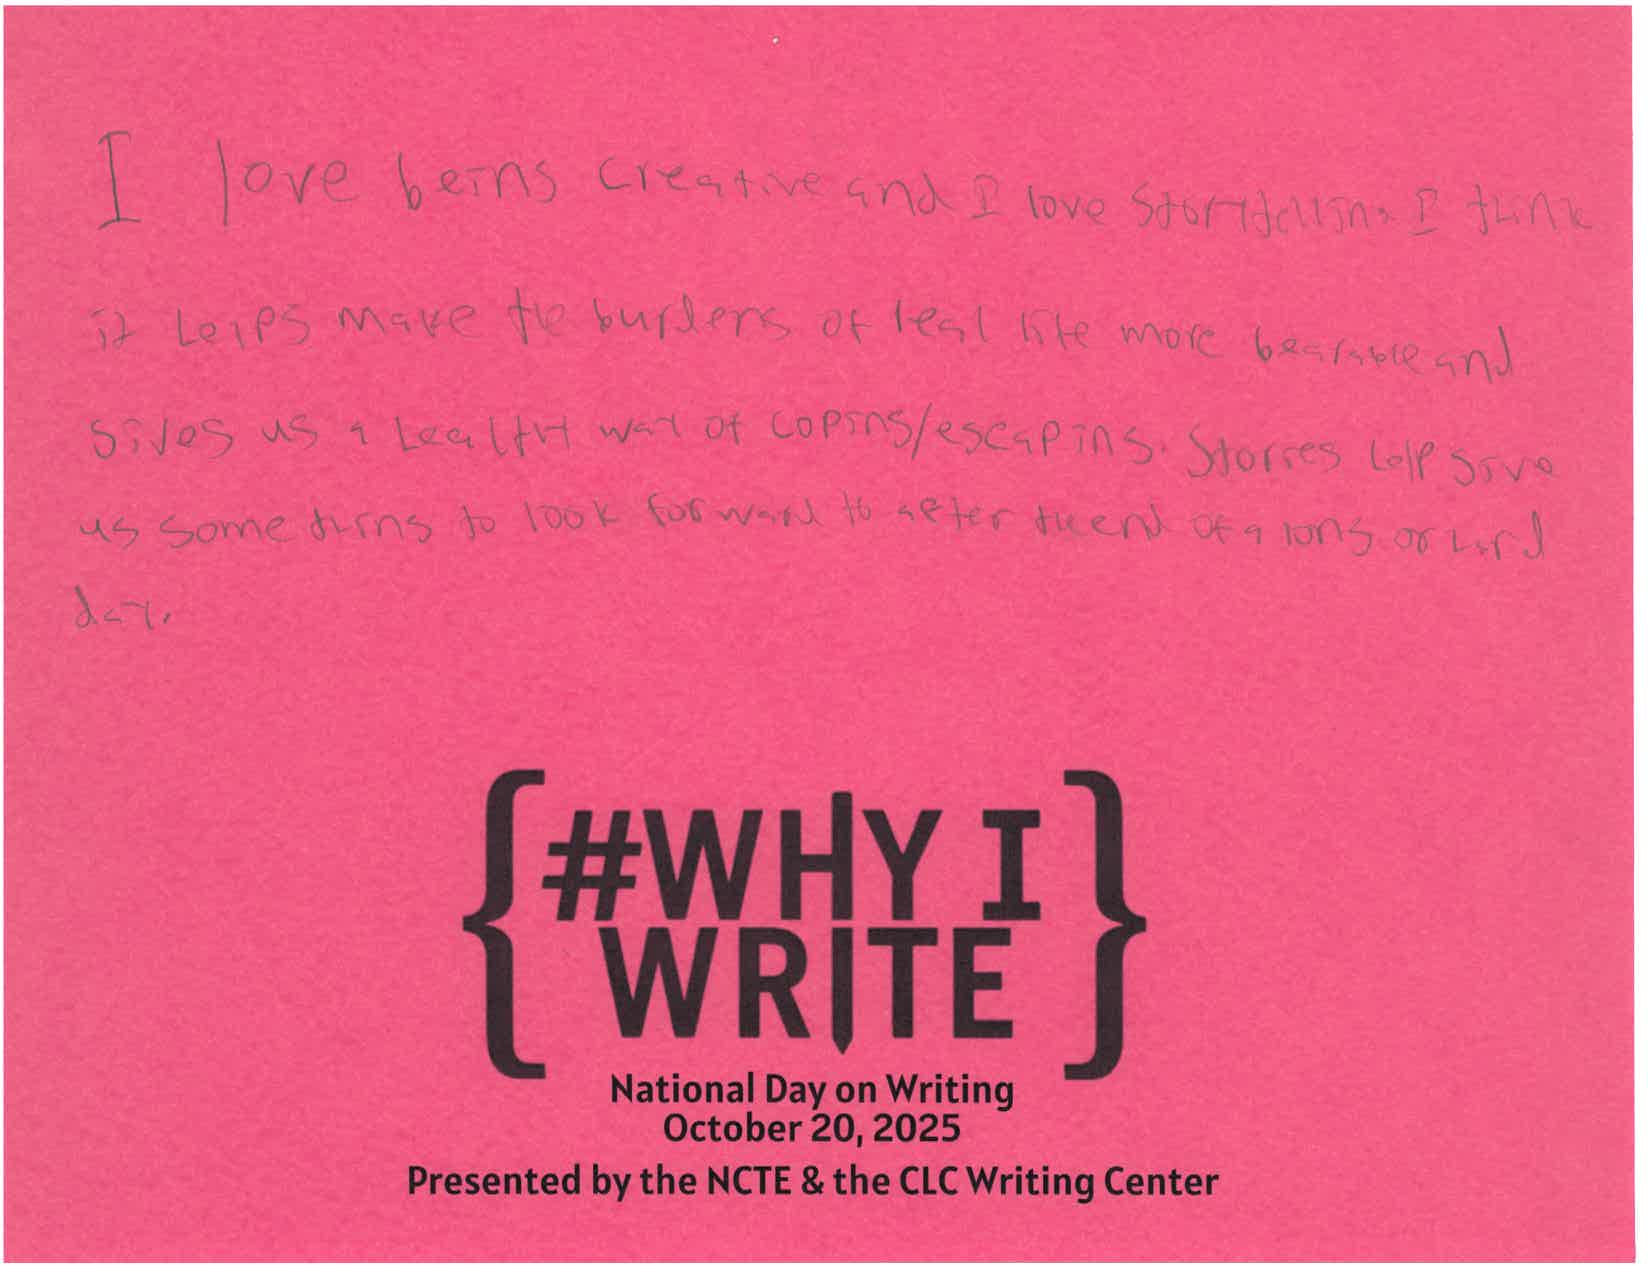 I love being creative and I love storytelling. I think
it helps make the burdens of real life more bearable and
gives us a healthy way of coping/escaping. Stories help give
us something to look forward to after the end of a long or hard
day.
{#WHY I
WRITE}
National Day on Writing
October 20, 2025
Presented by the NCTE & the CLC Writing Center